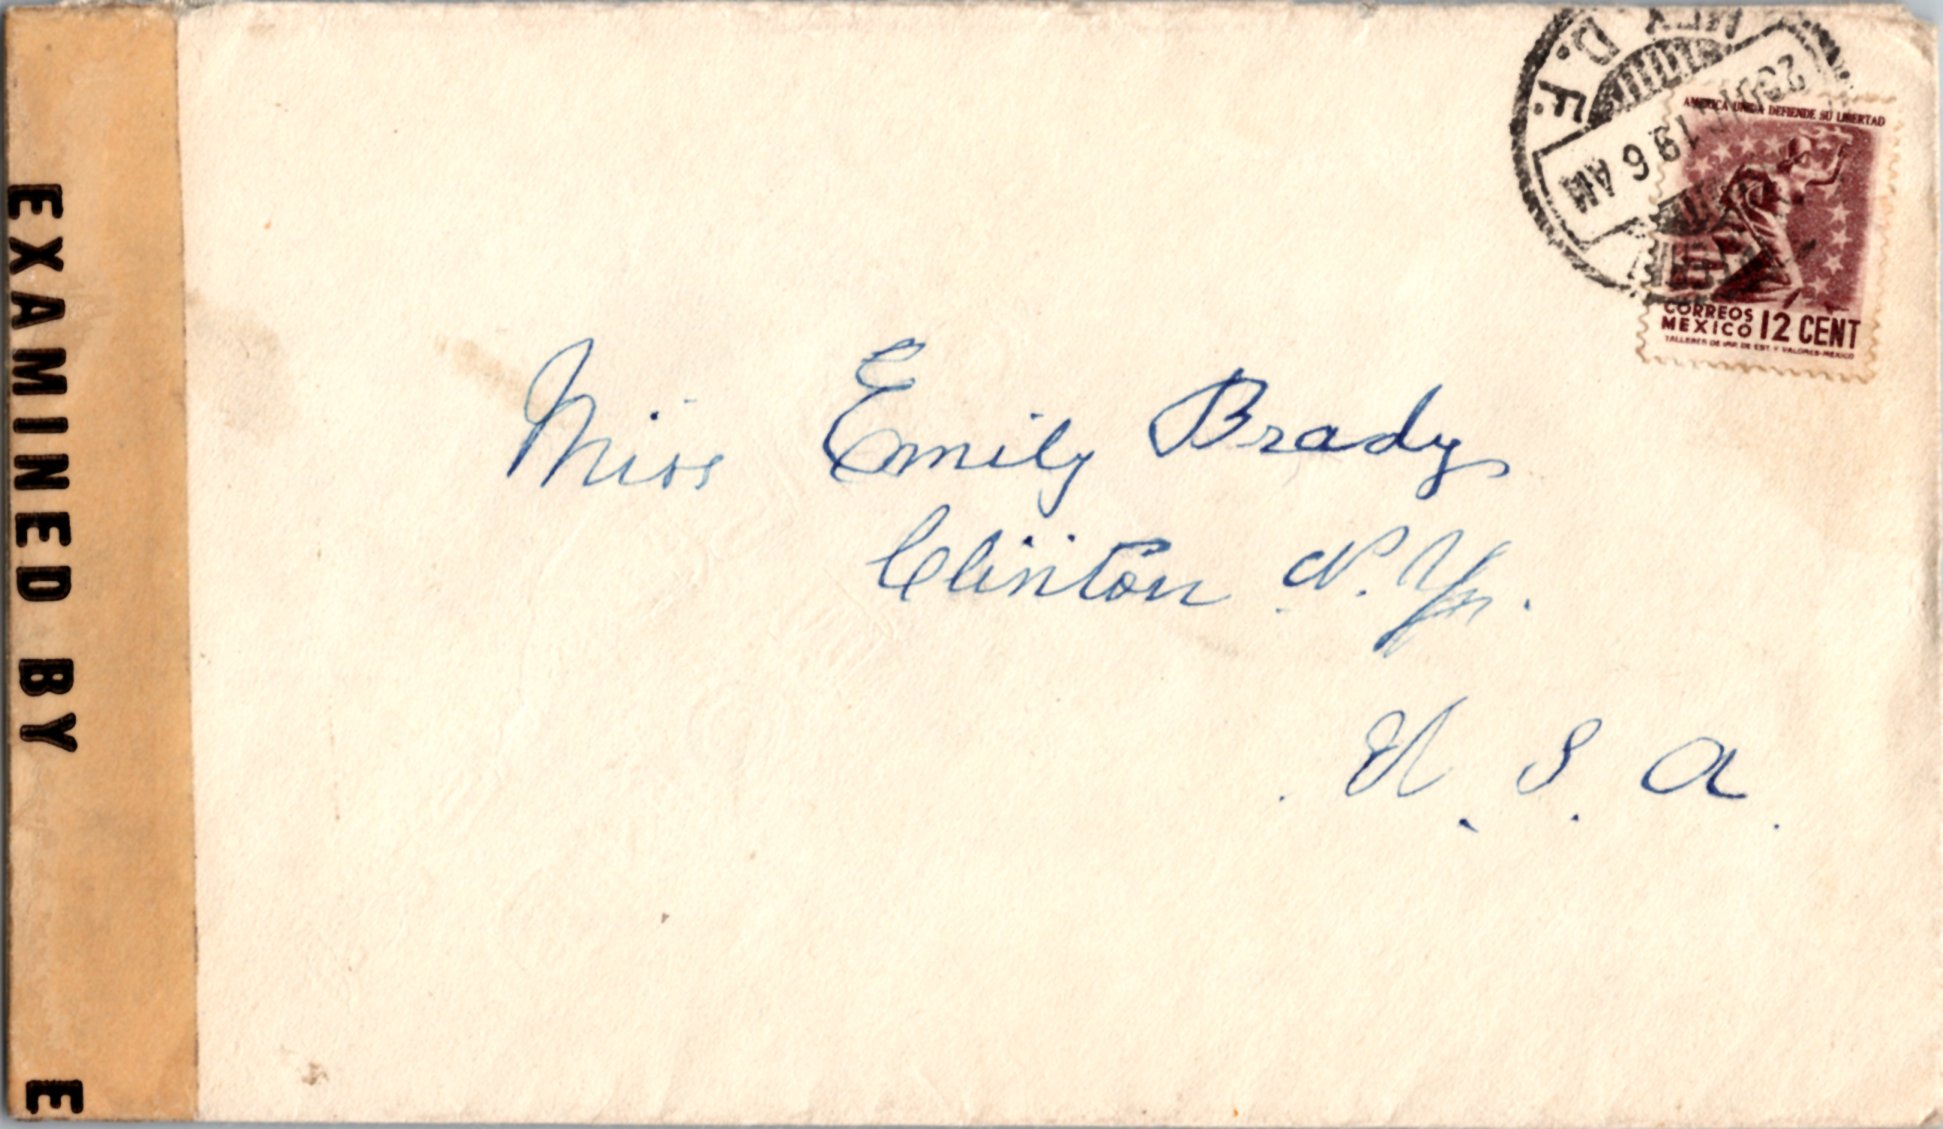 EXAMINED BY
E
MEX
D. F.
6 AM
AMERICA UNIDA DEFIENDE SU LIBERTAD
CORREOS
MEXICO 12 CENT
TALLERES DE IMP. DE EST. Y VALORES-MEXICO
Miss Emily Brady
Clinton N.Y.
U. S. A.